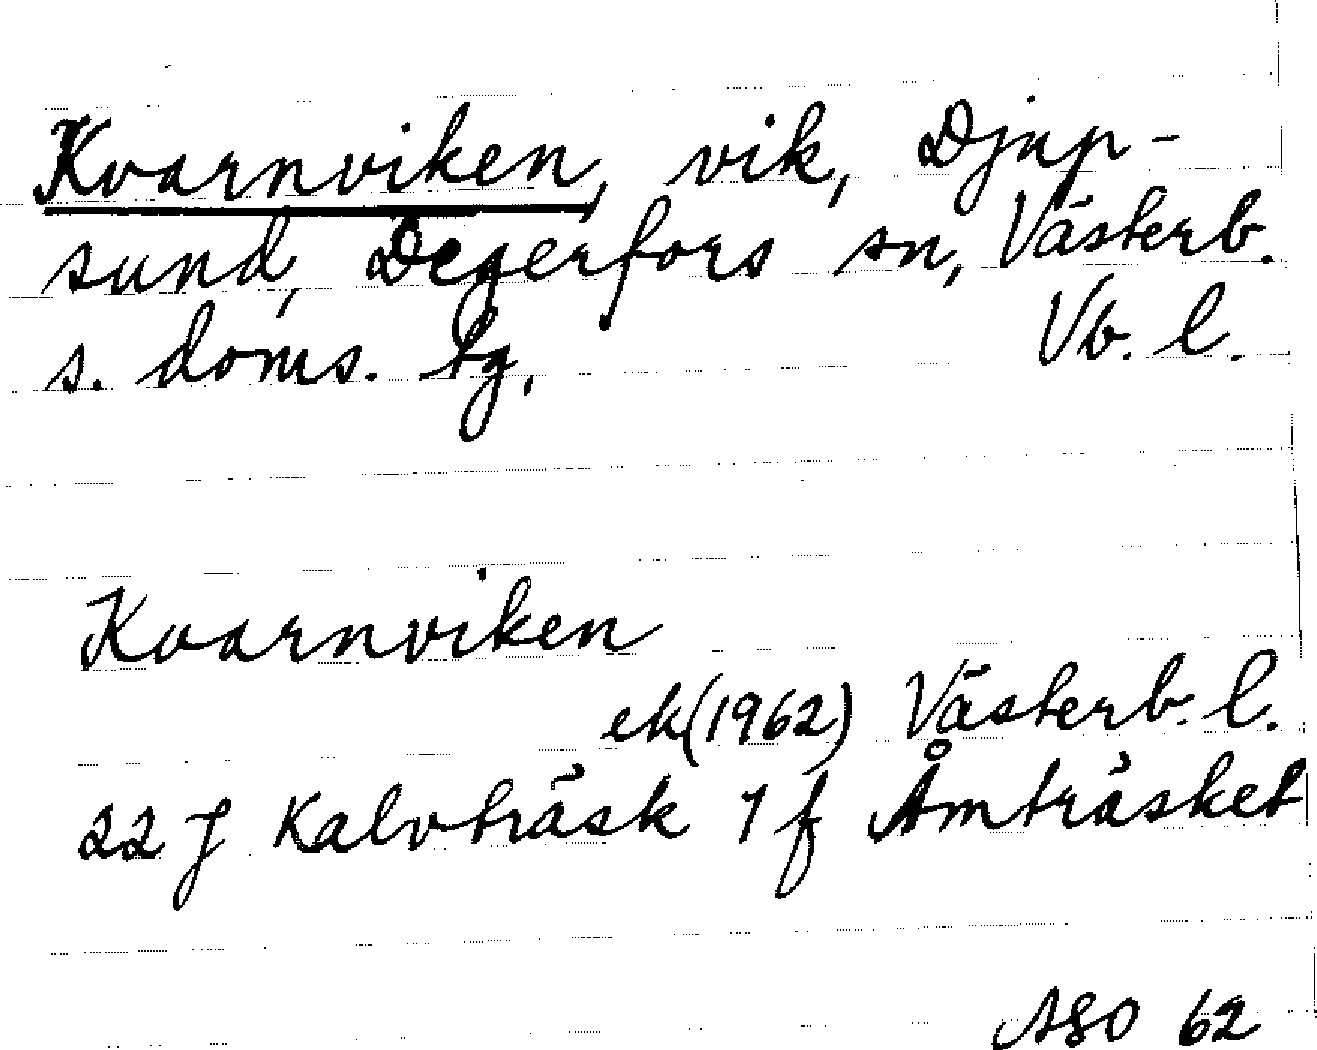 Kvarnviken, vik, Djup-
sund, Degerfors sn, Västerb.
s. doms. tg, Vb. l.
Kvarnviken
ek(1962) Västerb. l.
22 J Kalvträsk 1 f Åmträsket
ASO 62